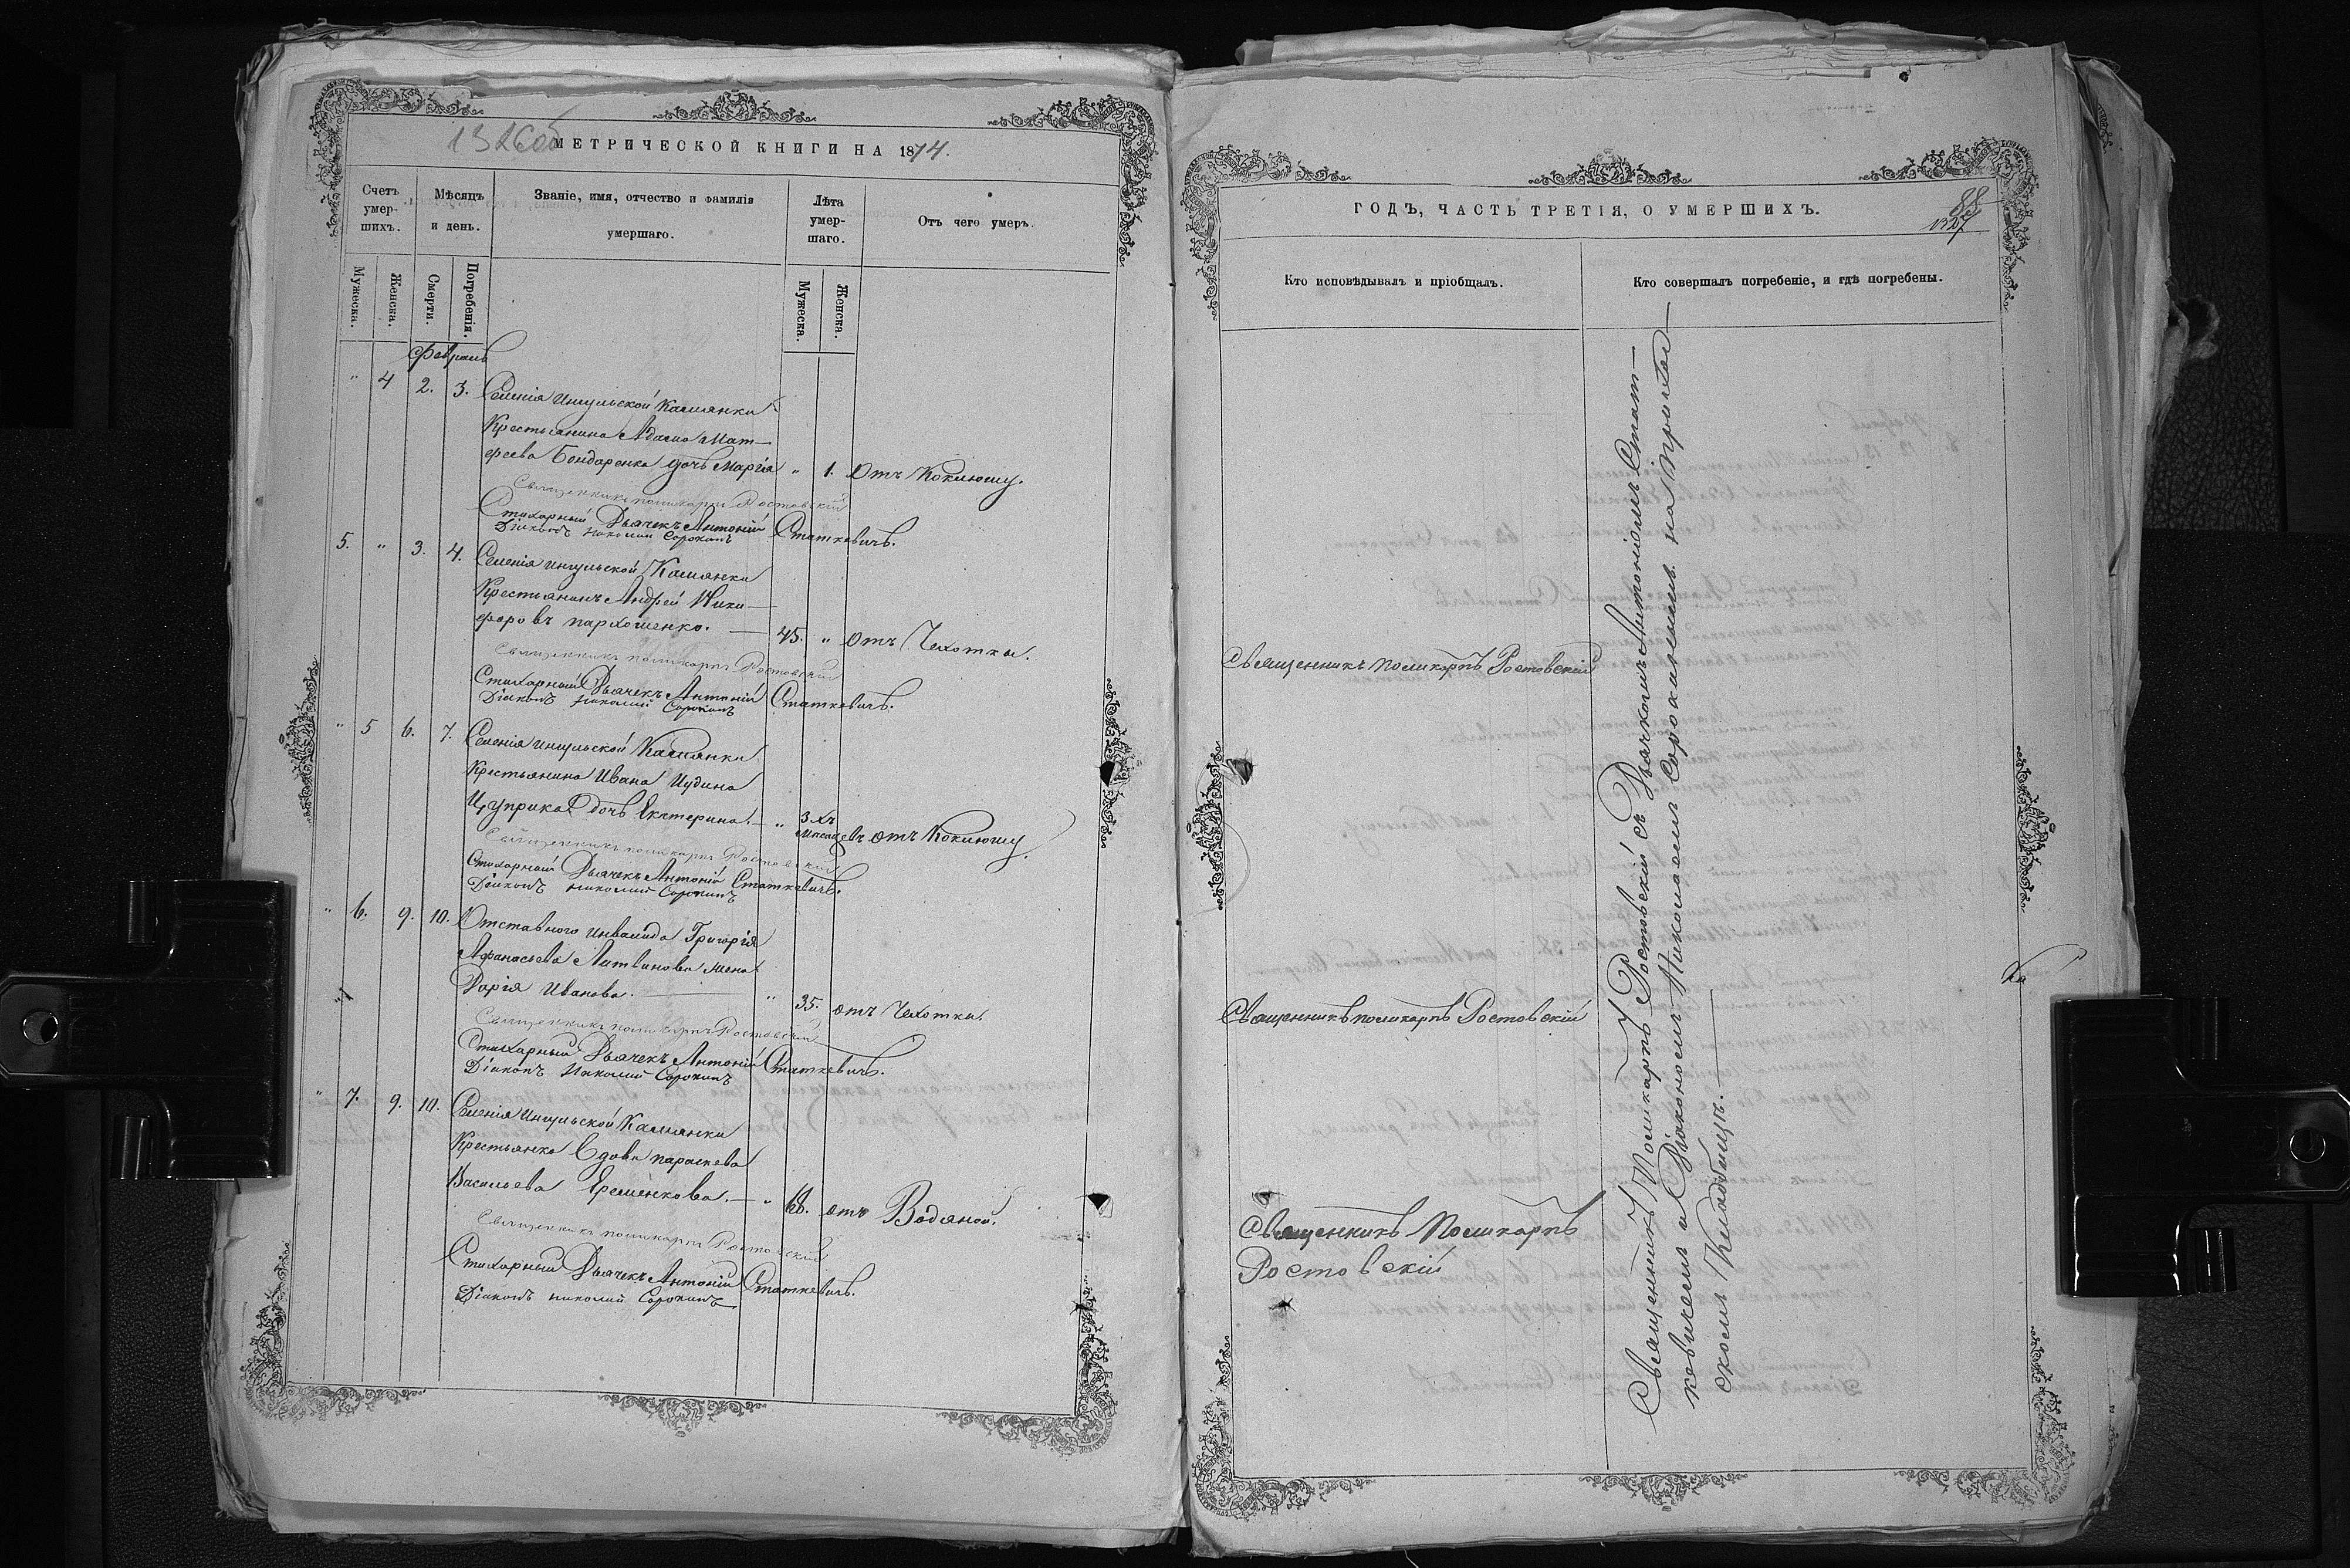 1326об
МЕТРИЧЕСКОЙ КНИГИ НА 1874.
Счетъ умер-шихъ.
Мѣсяцъ и день.
Званіе, имя, отчество и фамилія умершаго.
Лѣта умер-шаго.
Отъ чего умеръ.
Мужеска.
Женска.
Смерти.
Погребенія.
Мужеска.
Женска.
Февраль
" 4 2. 3. Селенія Ингульской Камянки
Крестьянина Адама Мат-
феева Бондаренка дочь Марія " 1. Отъ Коклюшу.
Священникъ Поликарпъ Ростовскій
Стихарный Дьячекъ Антоній Статкевичъ.
Діаконъ Николай Сорокинъ
5. " 3. 4. Селенія Ингульской Камянки
Крестьянинъ Андрей Ники-
форовъ Пархоменко. 45. " Отъ Чахотки.
Священникъ Поликарпъ Ростовскій
Стихарный Дьячекъ Антоній Статкевичъ.
Діаконъ Николай Сорокинъ
" 5 6. 7. Селенія Ингульской Камянки
Крестьянина Ивана Иудина
Цуприка дочь Екатерина. " 3хъ
месяцевъ отъ Коклюшу.
Священникъ Поликарпъ Ростовскій
Стихарный Дьячекъ Антоній Статкевичъ.
Діаконъ Николай Сорокинъ
" 6. 9. 10. Отставного инвалида Григорія
Афанасьева Литвинова жена
Дарія Иванова. " 35. отъ Чахотки.
Священникъ Поликарпъ Ростовскій
Стихарный Дьячекъ Антоній Статкевичъ.
Діаконъ Николай Сорокинъ
" 7. 9. 10. Селенія Ингульской Камянки
Крестьянка вдова Параскева
Васильева Еременкова. " 68. отъ Водяной.
Священникъ Поликарпъ Ростовскій
Стихарный Дьячекъ Антоній Статкевичъ.
Діаконъ Николай Сорокинъ
ГОДЪ, ЧАСТЬ ТРЕТІЯ, О УМЕРШИХЪ.
88
1327
Кто исповѣдывалъ и пріобщалъ.
Кто совершалъ погребеніе, и гдѣ погребены.
Священникъ Поликарпъ Ростовскій
Священникъ Поликарпъ Ростовскій
Священникъ Поликарпъ
Ростовскій
Священникъ Поликарпъ Ростовскій съ Дьячкомъ Антоніемъ Стат-
кевичемъ и Діакономъ Николаемъ Сорокинымъ на приход-
скомъ Кладбищѣ.